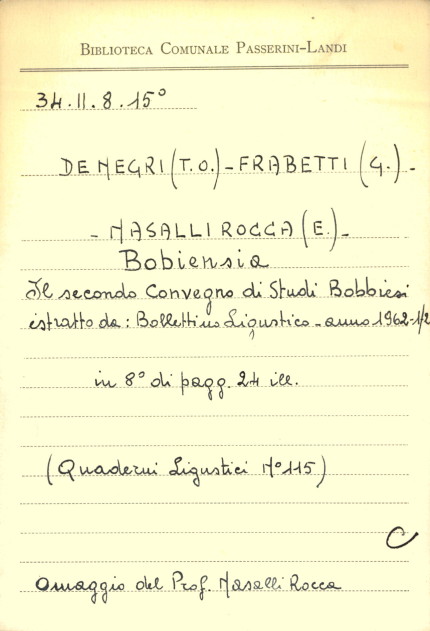 BIBLIOTECA COMUNALE PASSERINI-LANDI
34.II.8.15°
DE NEGRI (T.O.) - FRABETTI (G.) -
- NASALLI ROCCA (E.) -
Bobiensia
Il secondo Convegno di Studi Bobbiesi
estratto da: Bollettino Ligustico - anno 1962-1/2
in 8° di pagg. 24 ill.
(Quaderni Ligustici N° 115)
C
Omaggio del Prof. Nasalli Rocca